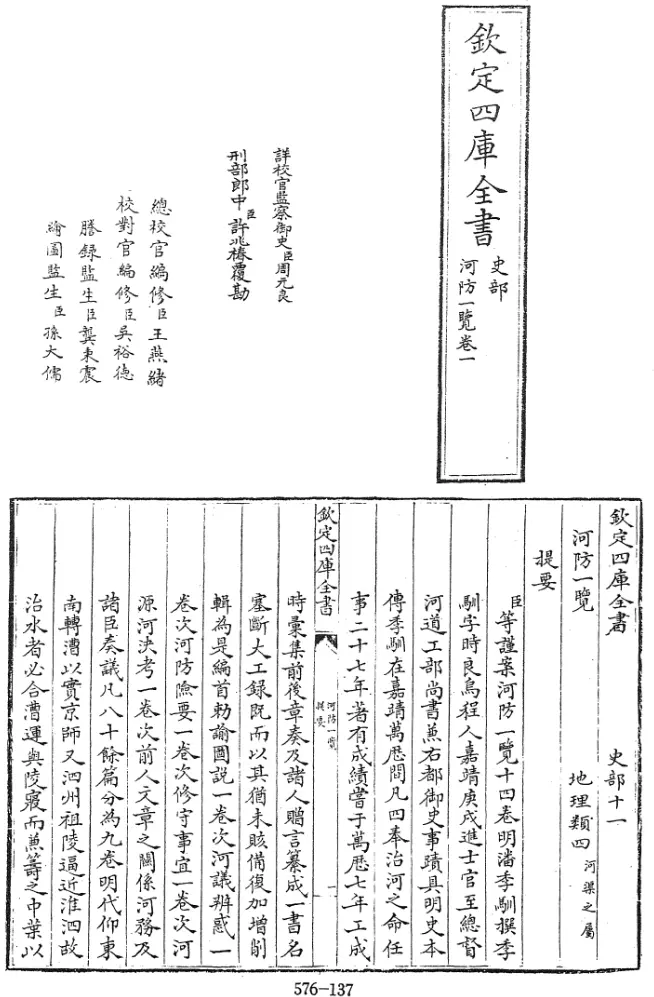 欽定四庫全書
史部
河防一覽卷一
詳校官監察御史臣周元良
刑部郎中臣許兆椿覆勘
總校官編修臣王燕緒
校對官編修臣吳裕德
謄錄監生臣龔東震
繪圖監生臣孫大儒
欽定四庫全書
史部十一
河防一覽
地理類四
河渠之屬
提要
臣等謹案河防一覽十四卷明潘季馴撰季
馴字時良烏程人嘉靖庚戌進士官至總督
河道工部尚書兼右都御史事蹟具明史本
傳季馴在嘉靖萬厯間凡四奉治河之命任
事二十七年著有成績嘗于萬厯七年工成
欽定四庫全書
河防一覽
提要
一
時彙集前後章奏及諸人贈言纂成一書名
塞斷大工錄既而以其猶未賅備復加增削
輯為是編首勅諭圖說一卷次河議辨惑一
卷次河防險要一卷次修守事宜一卷次河
源河決考一卷次前人文章之關係河務及
諸臣奏議凡八十餘篇分為九卷明代仰東
南轉漕以實京師又泗州祖陵逼近淮泗故
治水者必合漕運與陵寢而兼籌之中葉以
576-137